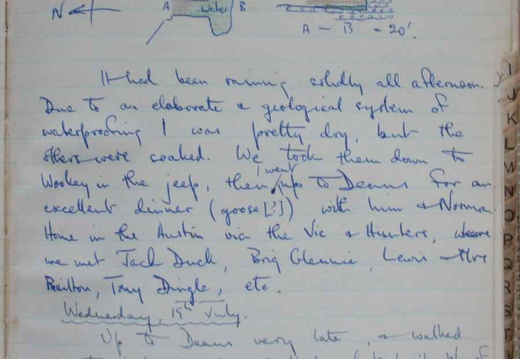 N
A
water
B
A - B = 20'.
It had been raining solidly all afternoon.
Due to an elaborate & geological system of
waterproofing I was pretty dry, but the
others were soaked. We took them down to
Wookey in the jeep, then went up to Deans for an
excellent dinner (goose[?]) with him & Norma.
Home in the Austin via the Vic & Hunters, where
we met Jack Duck, Brig Glennie, Lewis & Mrs
Railton, Tony Dingle, etc.
Wednesday, 19th July.
Up to Deans very late, & walked
I
J
K
L
M
N
O
P
Q
R
S
T